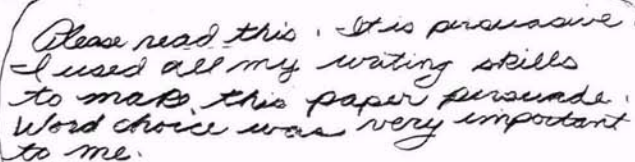 Please read this. It is persuasive
I used all my writing skills
to make this paper persuade.
Word choice was very important
to me.